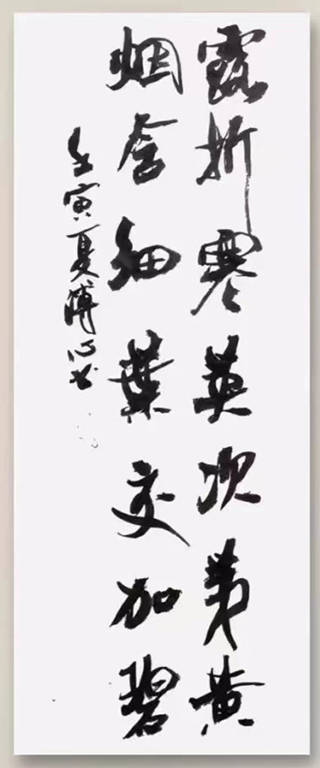 露折寒英次第黄
烟含細葉交加碧
壬寅夏心书